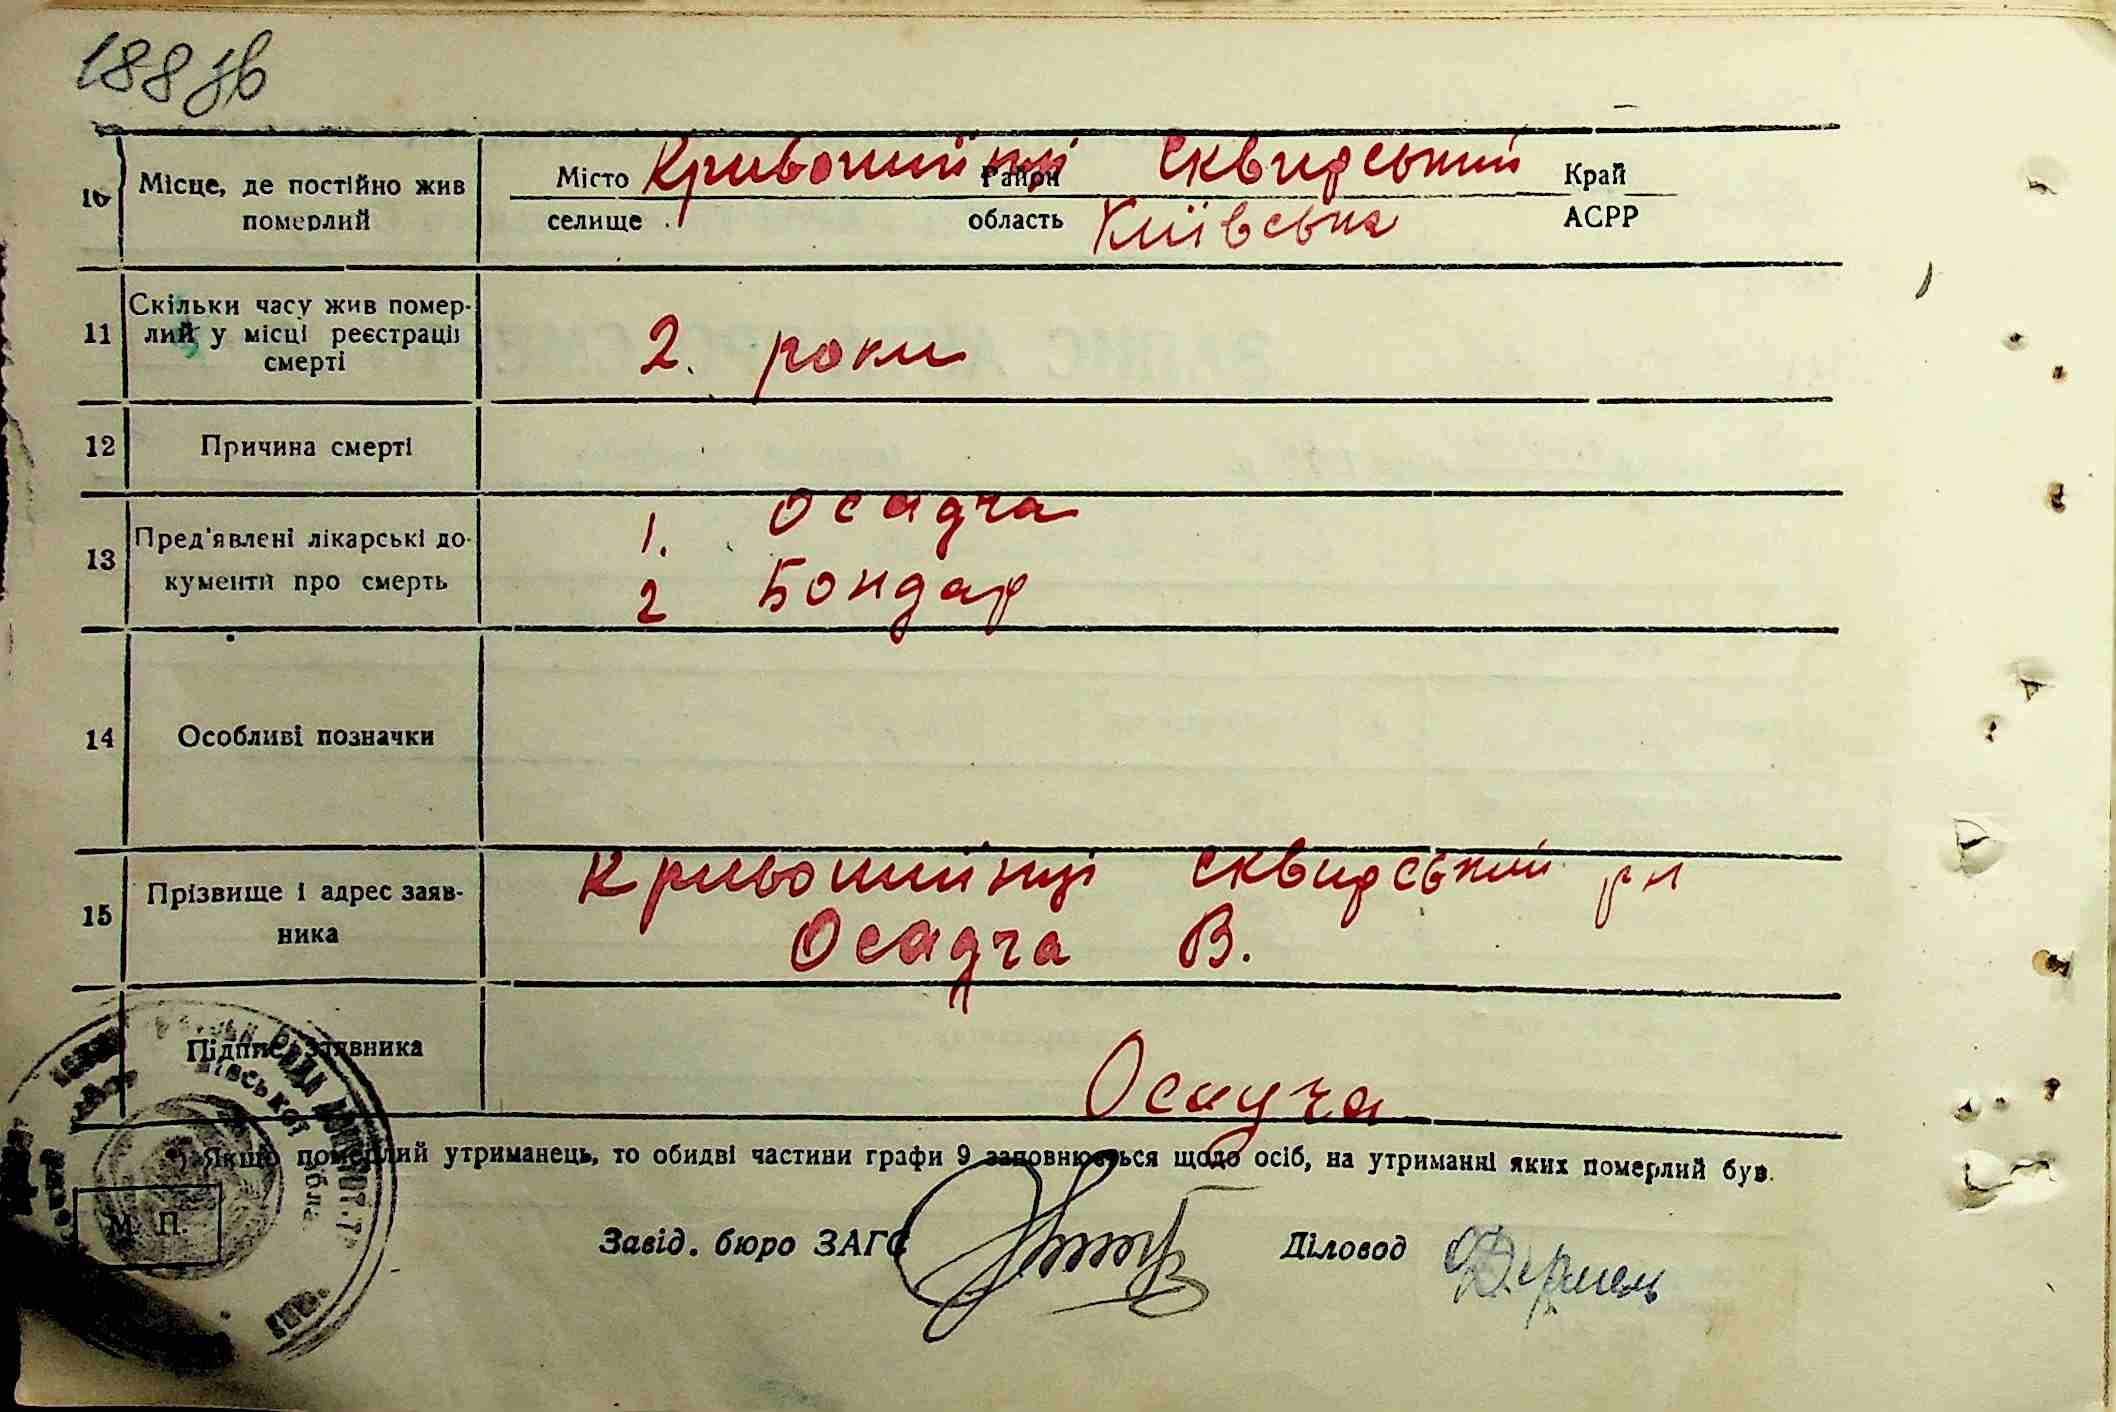 188 зв
10 Місце, де постійно жив померлий
Місто Кривошиїнці Район Сквирський Край
селище область Київська АСРР
11 Скільки часу жив помер-
лий у місці реєстрації
смерті
2. роки
12 Причина смерті
13 Пред'явлені лікарські до-
кументи про смерть
1. Осадча
2 Бондар
14 Особливі позначки
15 Прізвище і адрес заяв-
ника
Кривошиїнці Сквирський рн
Осадча В.
Підпис заявника
Осадча
*) Якщо померлий утриманець, то обидві частини графи 9 заповнюється щодо осіб, на утриманні яких померлий був.
М. П.
Завід. бюро ЗАГС Діловод